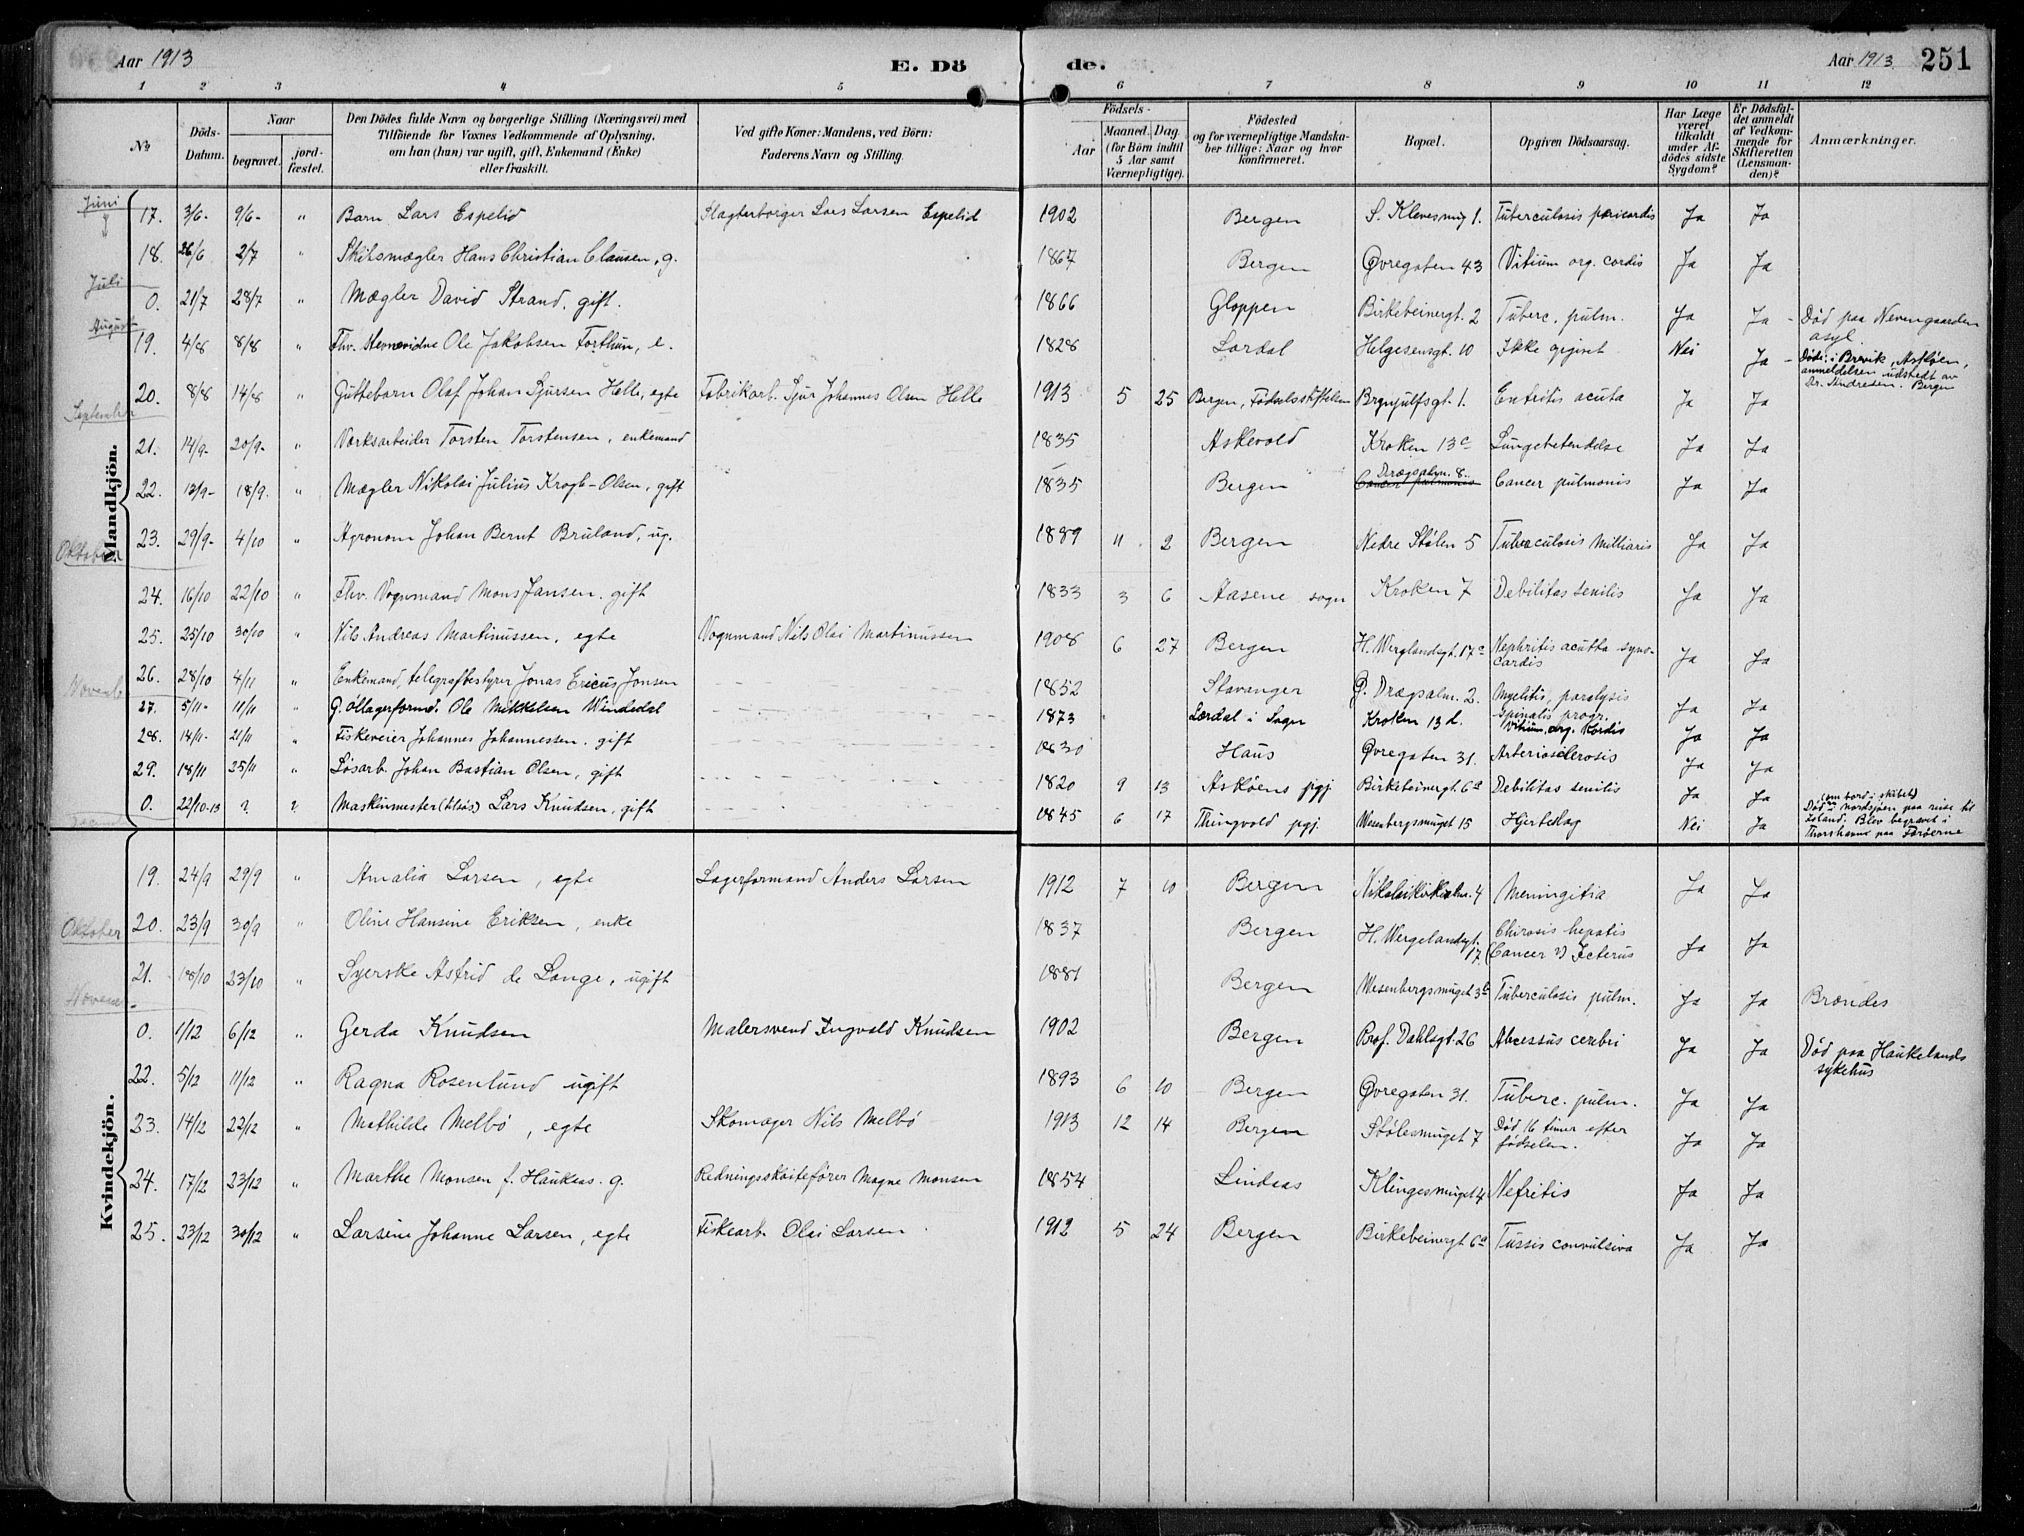 Aar 1913 E. Dö
de. Aar 1913 251
1 2 3 4 5 6 7 8 9 10 11 12
No
Döds-Datum.
Naar
begravet. jord-fæstet.
Den Dödes fulde Navn og borgerlige Stilling (Næringsvei) med
Tilföiende for Voxnes Vedkommende af Oplysning,
om han (hun) var ugift, gift, Enkemand (Enke)
eller fraskilt.
Ved gifte Koner: Mandens, ved Börn:
Faderens Navn og Stilling.
Födsels-
Aar
Maaned. Dag
(for Börn indtil
5 Aar samt
Værnepligtige).
Födested
og for værnepligtige Mandska-
ber tillige: Naar og hvor
konfirmeret.
Bopæl.
Opgiven Dödsaarsag.
Har Læge
været
tilkaldt
under Af-
dödes sidste
Sygdom?
Er Dödsfal-
det anmeldt
af Vedkom-
mende for
Skifteretten
(Lensman-
den)?
Anmærkninger.
Mandkjön.
Juni
17. 3/6- 9/6- " Barn Lars Espelid Slagterborger Lars Larsen Espelid 1902 Bergen S. Klevesmug 1. Tuberculosis pericardis Ja Ja
18. 26/6 2/7 " Skibsmægler Hans Christian Clausen, g. 1867 Bergen Øvregaten 43 Vitium org. cordis Ja Ja
Juli
0. 21/7 28/7 " Mægler David Strand, gift. 1866 Gloppen Birkebeinergt. 2 Tuberc. pulm. Ja Ja - Død paa Nevengaarden asyl.
August
19. 4/8 8/8 " Fhv. Stevnevidne Ole Jakobsen Forthun, e. 1828 Lærdal Helgesensgt. 10 Ikke opgivet Nei Ja - Døde i Brevik, Askøen, anmeldelsen udstedt av Dr. Andresen. Bergen
20. 8/8 14/8 " Guttebarn Olaf Johan Sjursen Helle, egte Fabrikarb. Sjur Johannes Olsen Helle 1913 5 25 Bergen, Fødselsstiftelsen Brynjulfsgt. 1. Entritis acuta Ja Ja
September
21. 14/9- 20/9- " Værksarbeider Torsten Torstensen, enkemand 1835 Askevold Kroken 13c Lungebetendelse Ja Ja
22. 13/9- 18/9. " Mægler Nikolai Julius Krogh-Olsen, gift 1835 Bergen Drægsalm. 8. Cancer pulmonis Cancer pulmonis Ja Ja
23. 29/9- 4/10 " Agronom Johan Bernt Bruland, ug. 1889 11 2 Bergen Nedre Stølen 5 Tuberculosis Milliaris Ja Ja
Oktober
24. 16/10 22/10 " Fhv. Vognmand Mons Jansen. gift 1833 3 6 Aasene sogn Kroken 7 Debilitas senilis Ja Ja
25. 25/10 30/10 " Nils Andreas Martinussen, egte Vognmand Nils Olai Martinussen 1908 6 27 Bergen H. Werglandsgt. 17c Nephritis acutta syno-cardis Ja Ja
26. 28/10 4/11 " Enkemand, telegrafbestyrer Jonas Ericus Jonsen 1852 Stavanger G. Drægsalm. 2. Myelitis, paralysis spinalis progr. Ja Ja
Novemb
27. 5/11- 11/11 " G. øllagerformd. Ole Mikkelsen Windedal 1873 Lærdal i Sogn Kroken 13 d. Vitium, org. Kordis Ja Ja
28. 14/11- 21/11 " Fiskeveier Johannes Johannessen. gift 1830 Haus Øvregaten 31. Arteriosclerosis Ja Ja
29. 18/11 25/11 " Løsarb. Johan Bastian Olsen, gift 1820 9 13 Askøens pgj Birkebeinergt. 6a Debilitas senilis Ja Ja
0. 22/10-13 ? ? Maskinmester (tilsøs) Lars Knudsen, gift 1845 6 17 Thingvold pgj. Wesenbergsmuget 15 Hjerteslag Nei Ja Død (om bord i skibet) i Nordsjøen paa reise til Island. Blev begravet i Thorshavn paa Færøerne
Kvindekjön.
19. 24/9 29/9 " Amalia Larsen, egte Lagerformand Anders Larsen 1912 7 10 Bergen Nikolaikirkealm. 4 Meningitia Ja Ja
20. 23/9 30/9 " Oline Hansine Eriksen, enke 1837 Bergen H. Wergelandsgt. 17. Chirosis hepatis (Cancer ?) Icterus Ja Ja
Oktober
21. 18/10 23/10 " Syerske Astrid de Lange, ugift 1881 Bergen Wesenbergsmuget 3b Tuberculosis pulm. Ja Ja Brændes
Novem
0. 1/12 6/12 " Gerda Knudsen Malersvend Ingvald Knudsen 1902 Bergen Prof. Dahlsgt. 26 Abcessus cerebri Ja Ja Død paa Haukelands sykehus
22. 5/12 11/12 " Ragna Rosenlund ugift 1893 6 10 Bergen Øvregaten 31. Tuberc. pulm. Ja Ja
23. 14/12 22/12 " Mathilde Melbø, egte Skomager Nils Melbø 1913 12 14 Bergen Stølesmuget 7 Død 16 timer efter fødselen. Ja Ja
24. 17/12 23/12 " Marthe Monsen f. Haukaas. g. Redningsskøitefører Magne Monsen 1854 Lindaas Klingesmuget 4 Nefritis Ja Ja
25. 23/12 30/12 " Larsine Johanne Larsen, egte Fiskearb. Olai Larsen 1912 5 24 Bergen Birkebeinergt 6a Tussis convulsiva Ja Ja